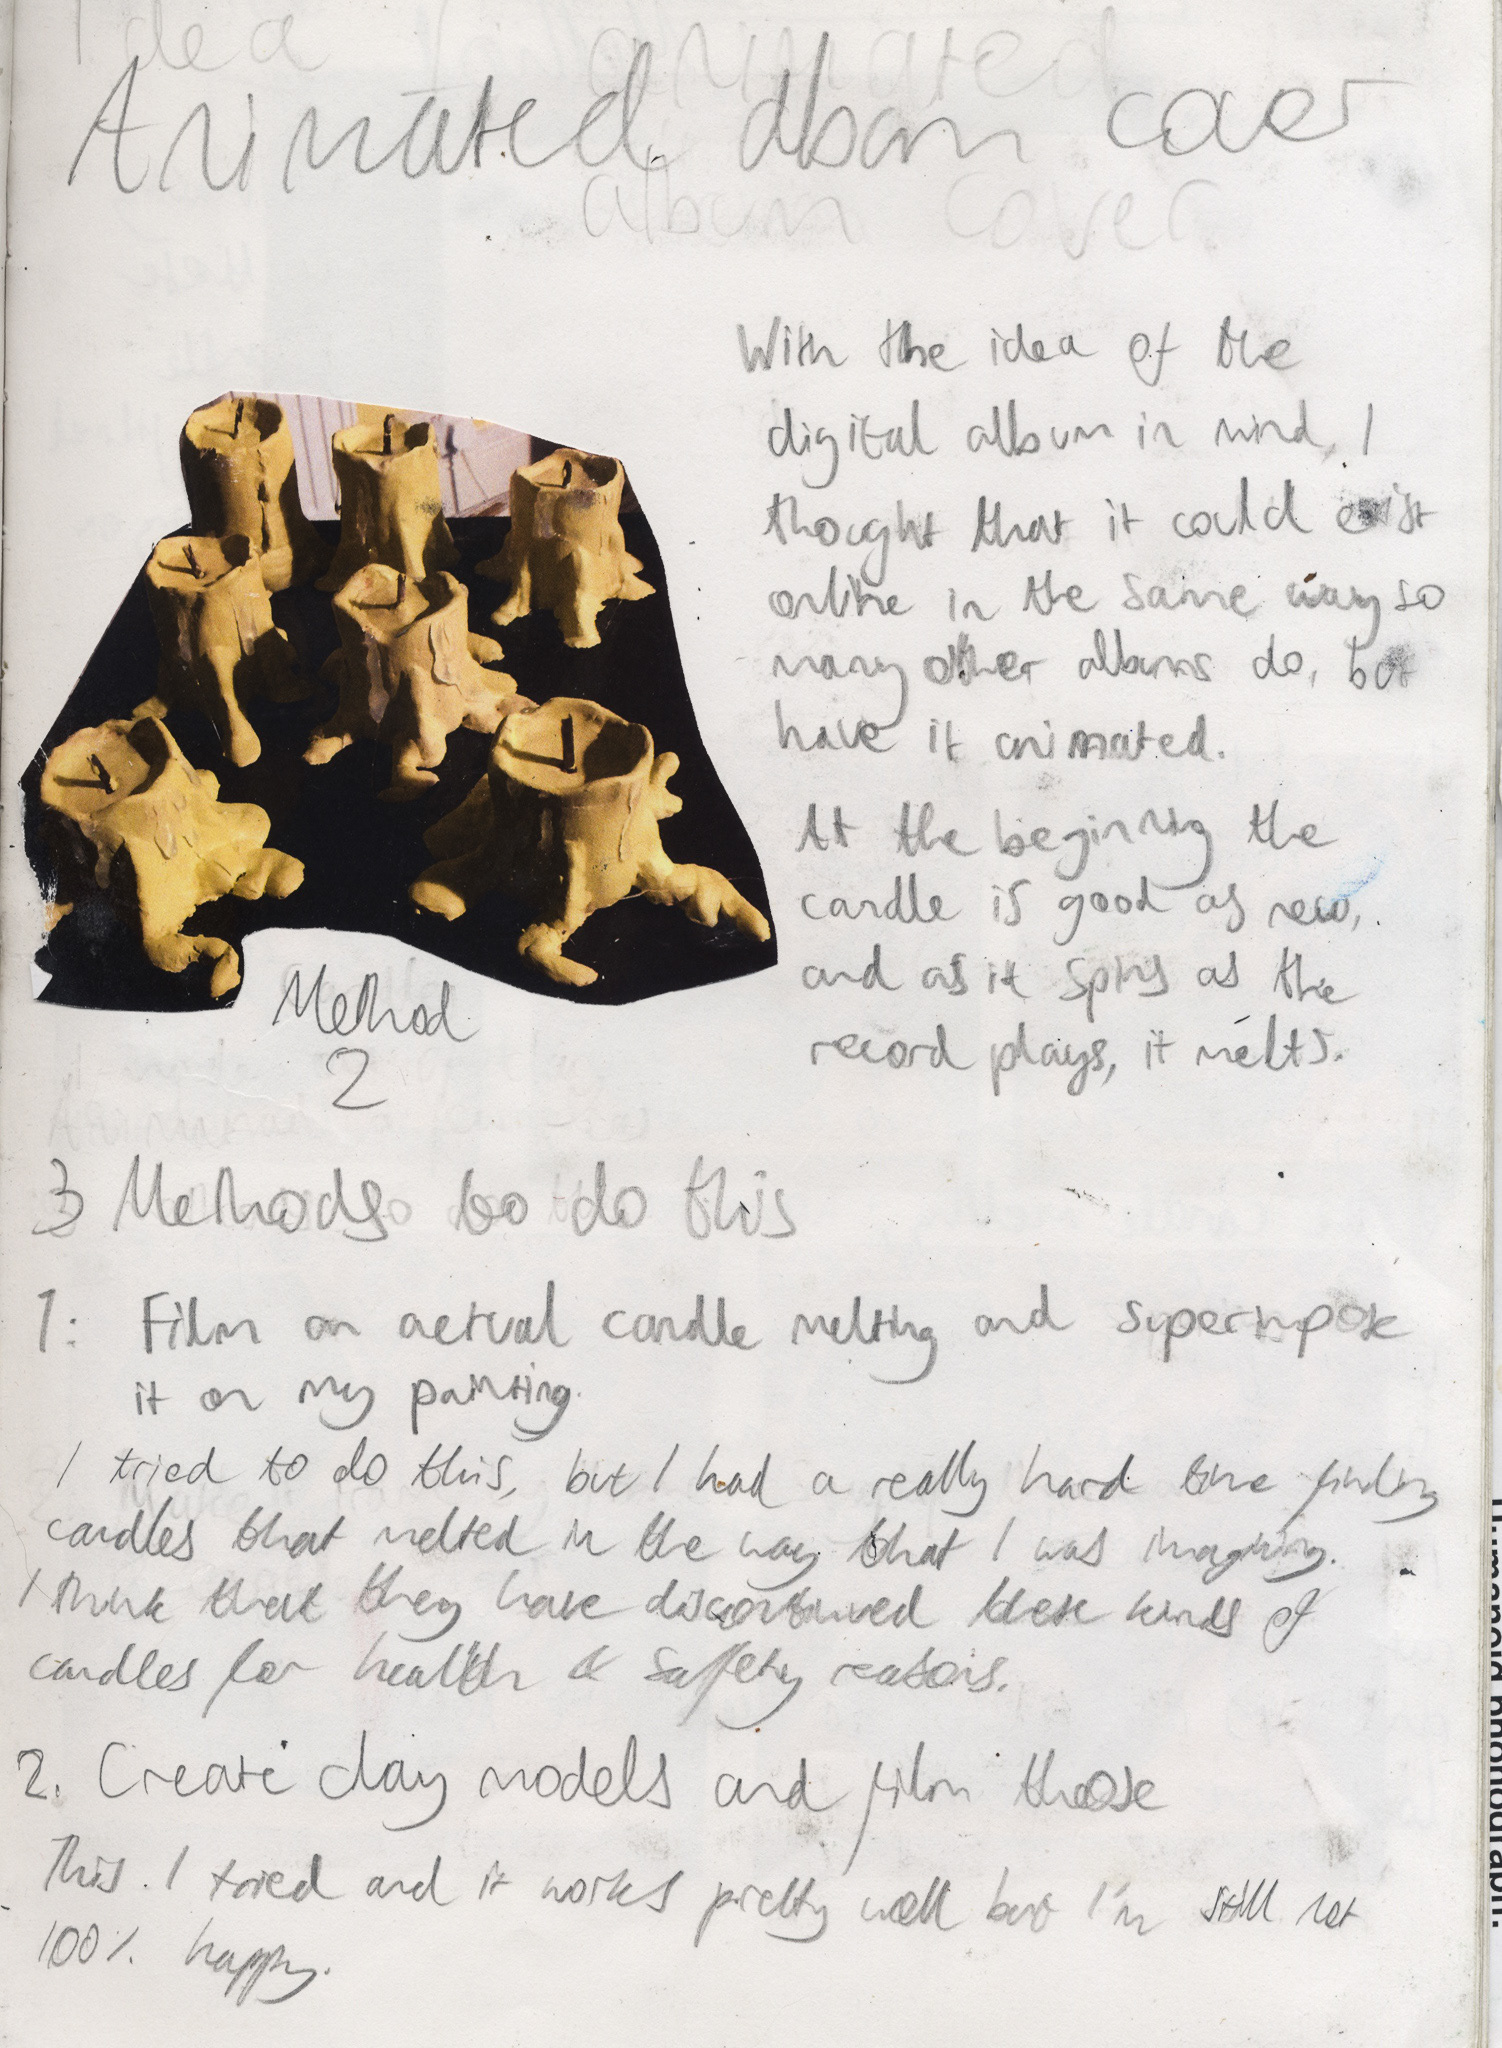 Idea for animated
Animated album cover
album cover.
With the idea of the
digital album in mind, I
thought that it could exist
online in the same way so
many other albums do, but
have it animated.
At the beginning the
candle is good as new,
and as it spins as the
record plays, it melts.
Method
2
3 Methods to do this
1: Film an actual candle melting and superimpose
it on my painting.
I tried to do this, but I had a really hard time finding
candles that melted in the way that I was imagining.
I think that they have discontinued these kinds of
candles for health & Safety reasons.
2. Create clay models and film those
This I tried and it works pretty well but I'm still not
100% happy.